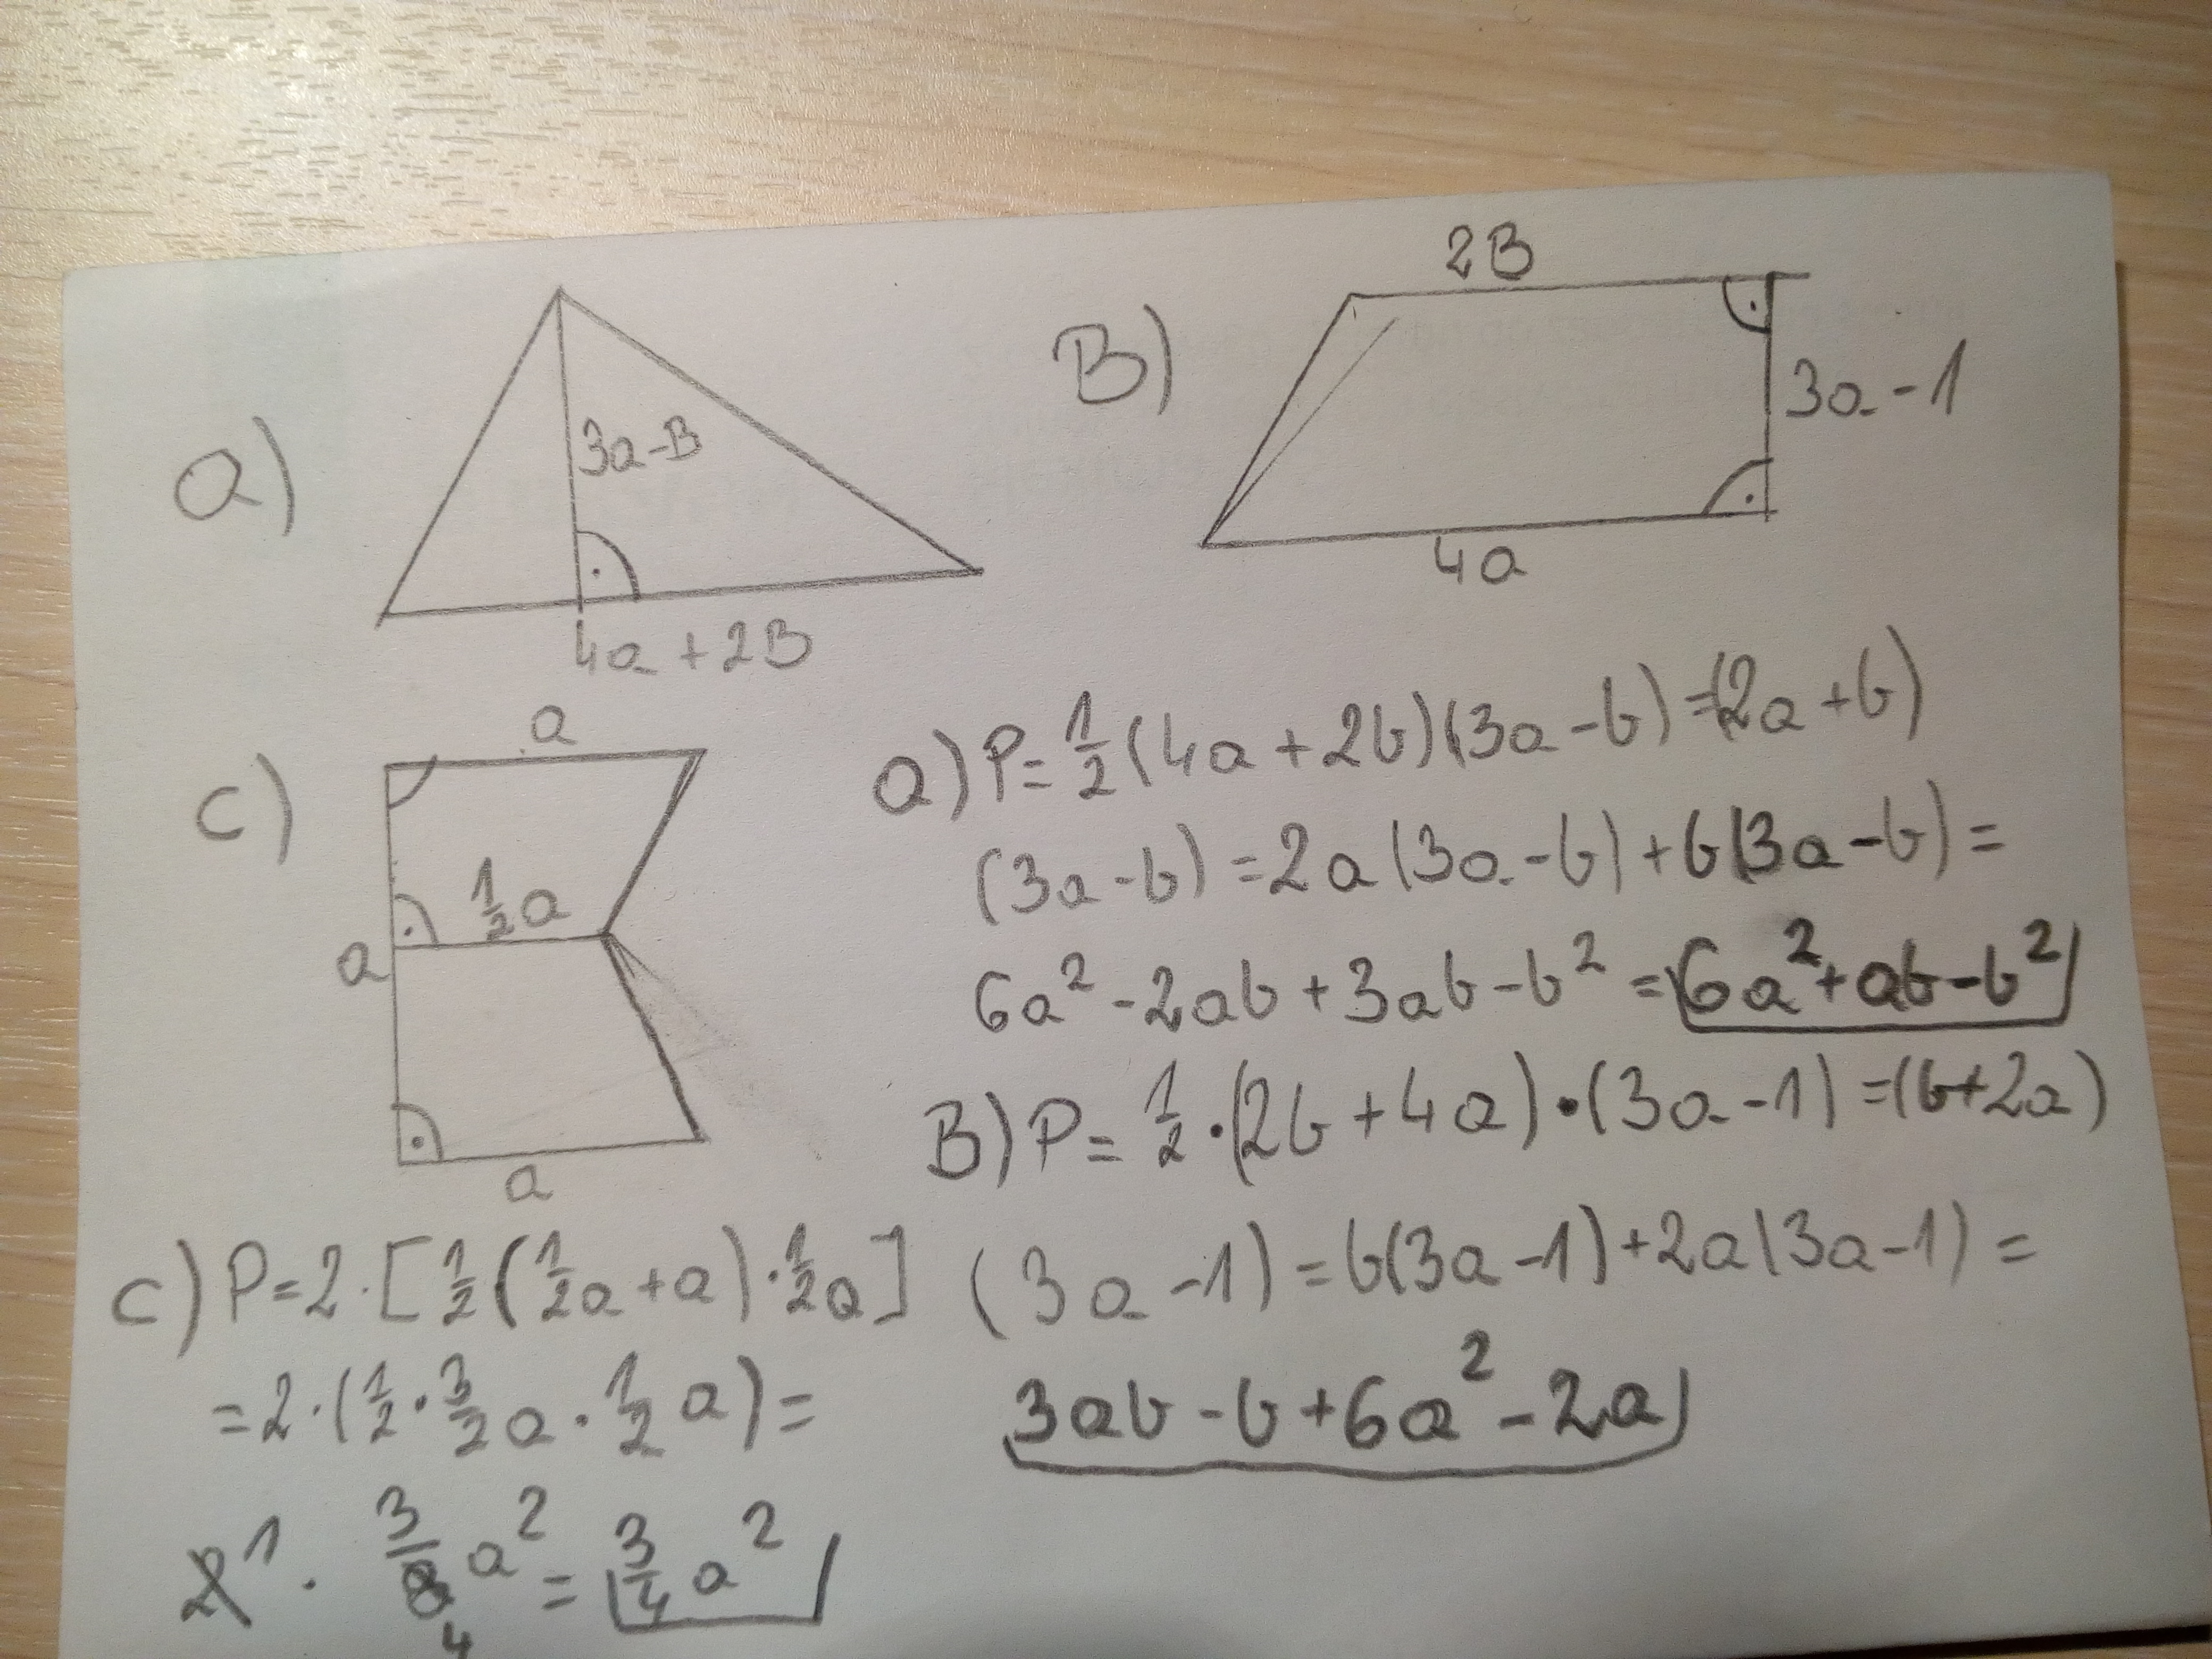 a)
3a-B
4a+2B
B)
2B
3a-1
4a
c)
a
1/2 a
a
a
a) P= 1/2 (4a+2b)(3a-b)=(2a+b)
(3a-b)=2a(3a-b)+b(3a-b)=
6a²-2ab+3ab-b²=6a²+ab-b²
B) P= 1/2·(2b+4a)·(3a-1)=(b+2a)
(3a-1)=b(3a-1)+2a(3a-1)=
3ab-b+6a²-2a
c) P=2·[1/2(1/2a+a)·1/2a]
=2·(1/2·3/2a·1/2a)=
2 1 · 3/8 4 a² = 3/4 a²